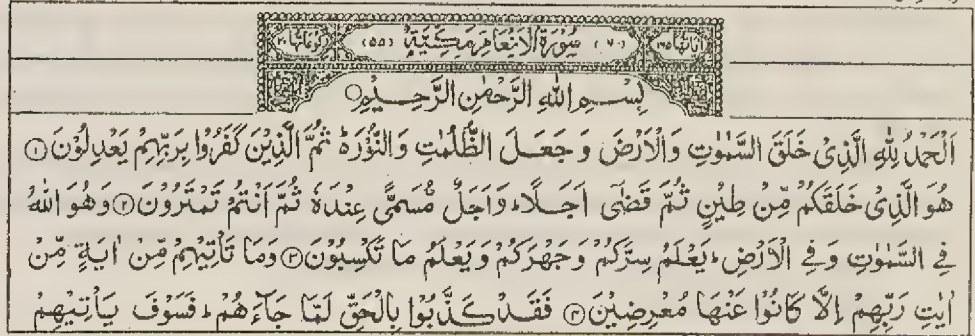 اٰیاتها ۱۶۵ (۶) سُوْرَةُ الْاَنْعَامِ مَكِّيَّةٌ (۵۵) رکوعاتها ۲۰
بِسْمِ اللّٰهِ الرَّحْمٰنِ الرَّحِيْمِ
اَلْحَمْدُ لِلّٰهِ الَّذِىْ خَلَقَ السَّمٰوٰتِ وَالْاَرْضَ وَجَعَلَ الظُّلُمٰتِ وَالنُّوْرَ ؕ ثُمَّ الَّذِيْنَ كَفَرُوْا بِرَبِّهِمْ يَعْدِلُوْنَ ۱
هُوَ الَّذِىْ خَلَقَكُمْ مِّنْ طِيْنٍ ثُمَّ قَضٰۤى اَجَلًا ؕ وَاَجَلٌ مُّسَمًّى عِنْدَهٗ ثُمَّ اَنْتُمْ تَمْتَرُوْنَ ۲ وَهُوَ اللّٰهُ
فِى السَّمٰوٰتِ وَفِى الْاَرْضِ ؕ يَعْلَمُ سِرَّكُمْ وَجَهْرَكُمْ وَيَعْلَمُ مَا تَكْسِبُوْنَ ۳ وَمَا تَاْتِيْهِمْ مِّنْ اٰيَةٍ مِّنْ
اٰيٰتِ رَبِّهِمْ اِلَّا كَانُوْا عَنْهَا مُعْرِضِيْنَ ۴ فَقَدْ كَذَّبُوْا بِالْحَقِّ لَمَّا جَآءَهُمْ ؕ فَسَوْفَ يَاْتِيْهِمْ